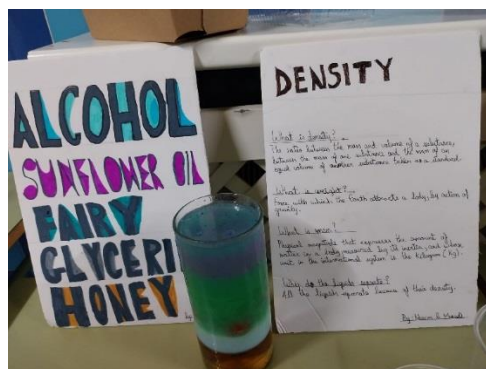 ALCOHOL
SUNFLOWER OIL
FAIRY
GLYCERI
HONEY
by
DENSITY
What is density?
The ratio between the mass and volume of a substance,
between the mass of one substance and the mass of an
equal volume of another substance taken as a standard.
What is weight?
Force with which the Earth attracts a body, by action of
gravity.
What is mass?
Physical magnitude that expresses the amount of
matter in a body measured by its inertia, and whose
unit in the international system is the kilogram (Kg).
Why do the liquids separate?
All the liquids separate because of their density.
By: